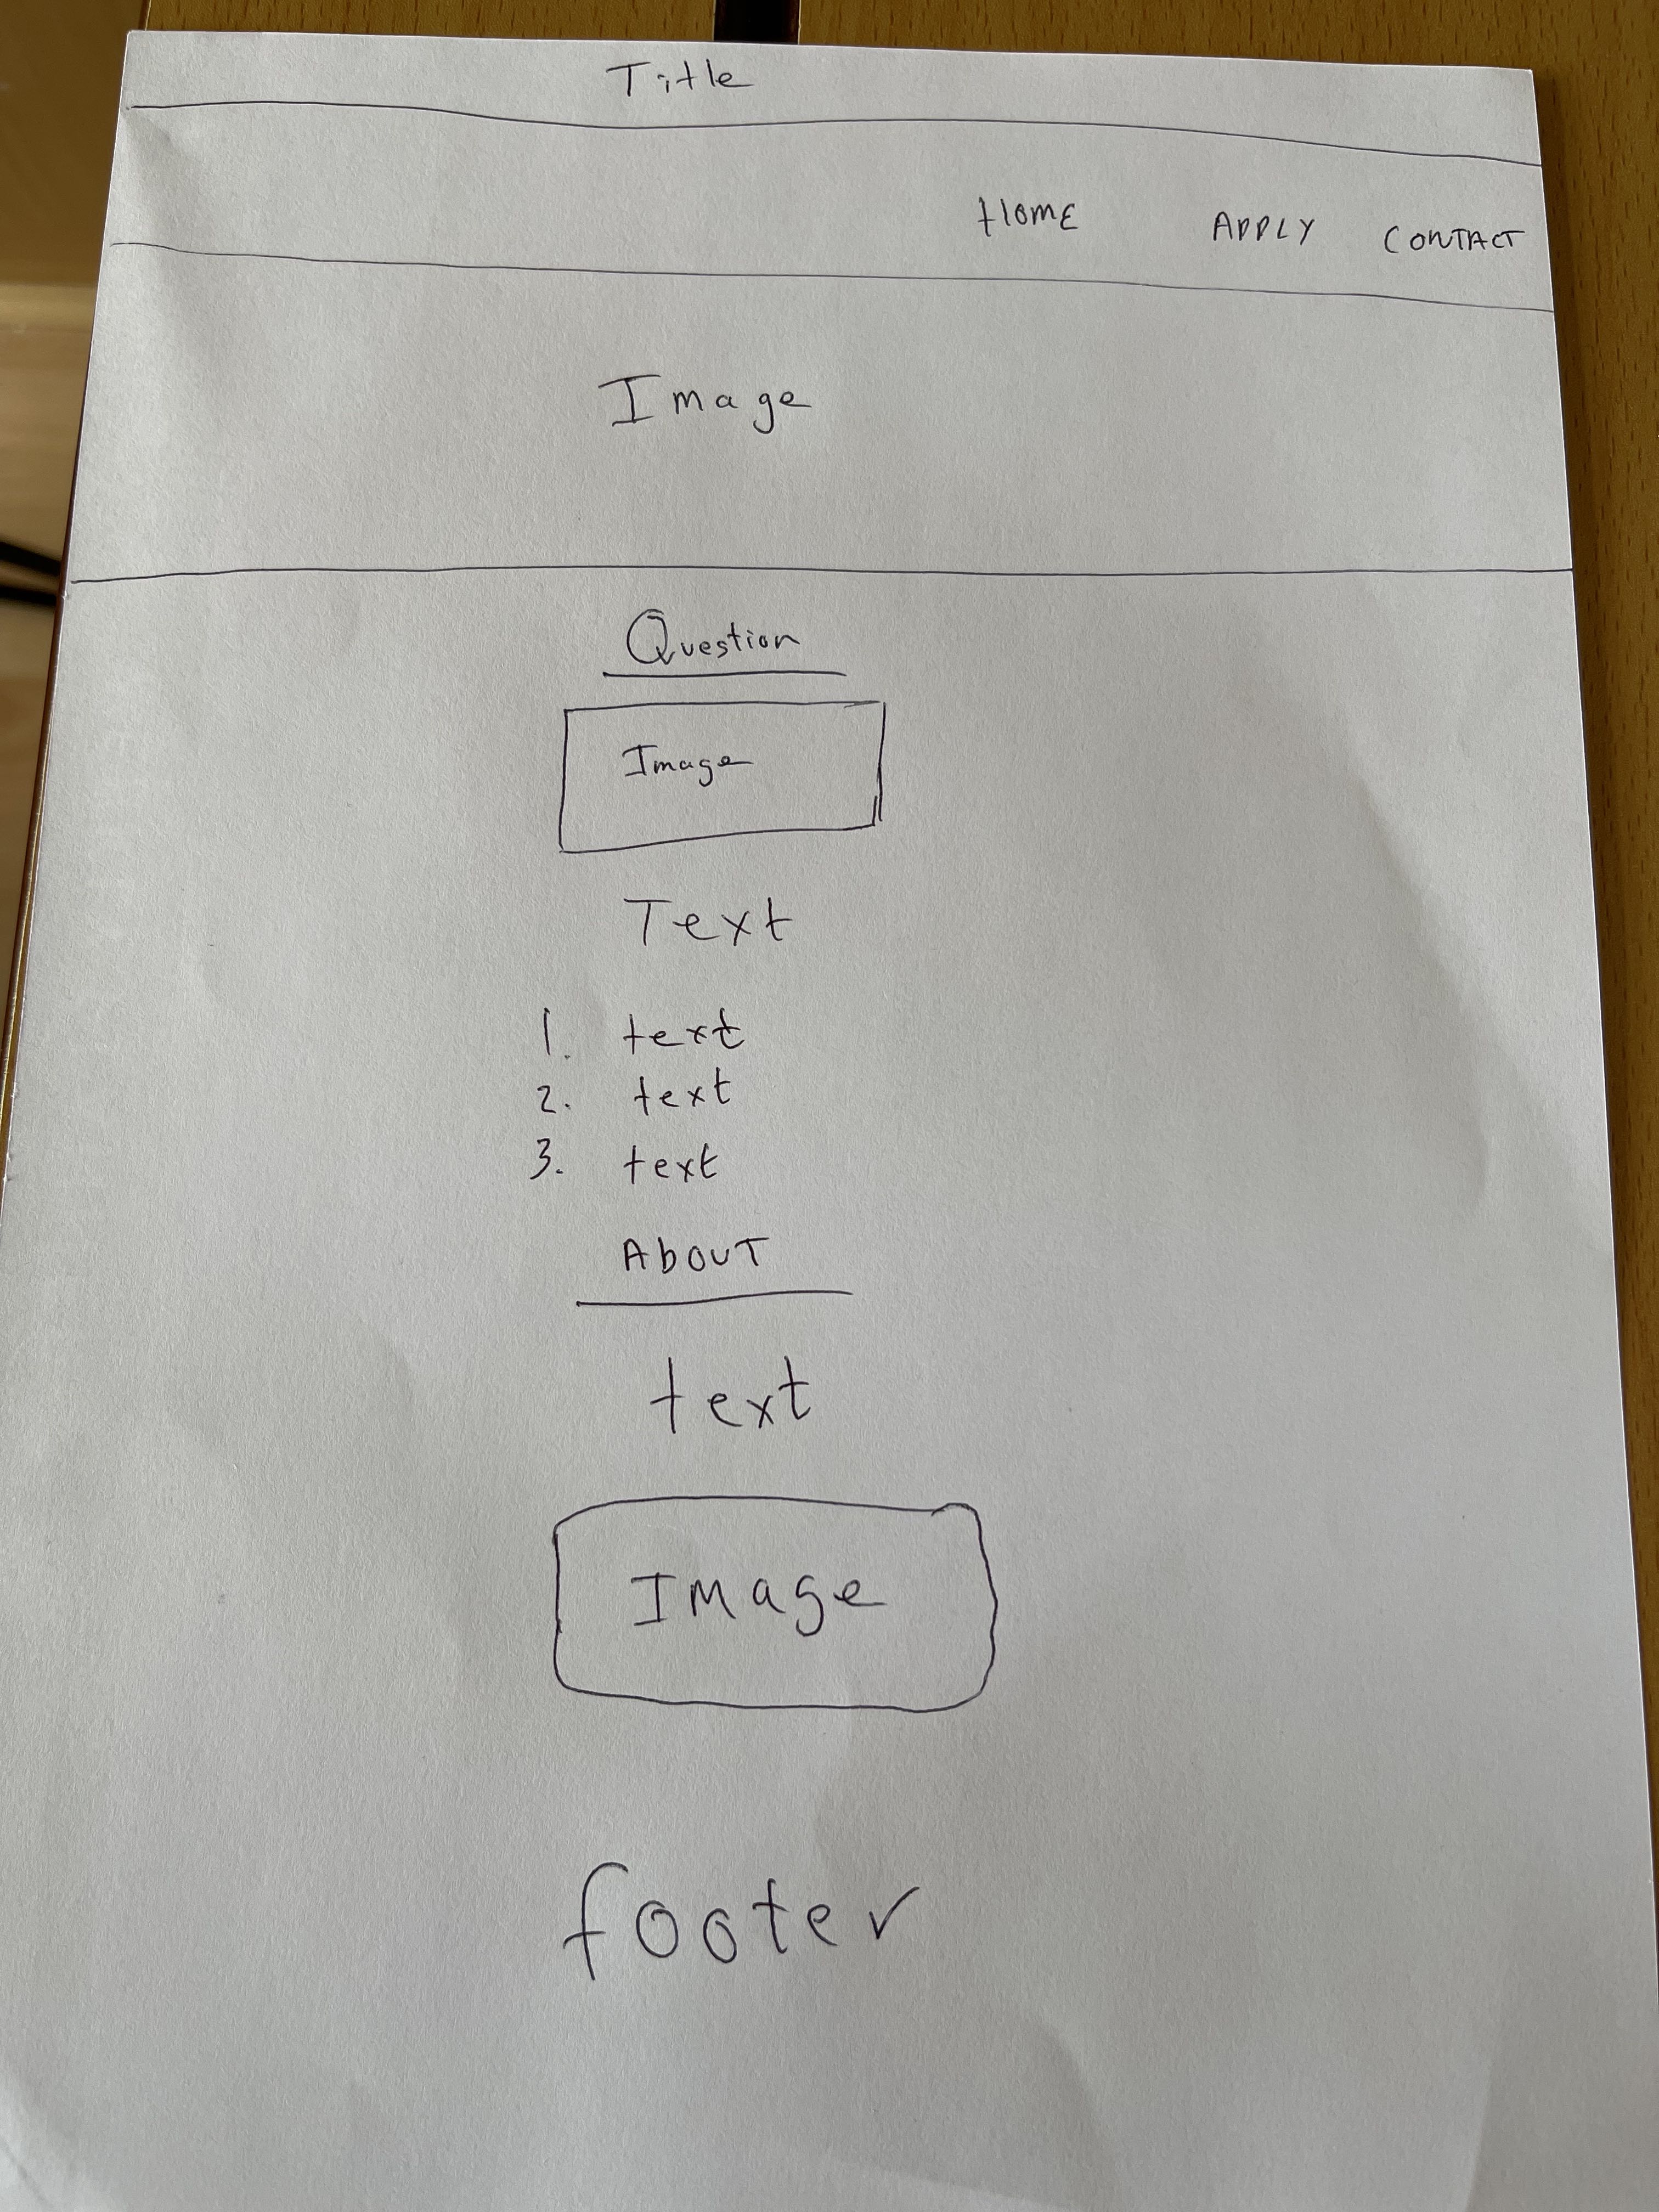 Title
HOME APPLY CONTACT
Image
Question
Image
Text
1. text
2. text
3. text
AbOUT
text
Image
footer